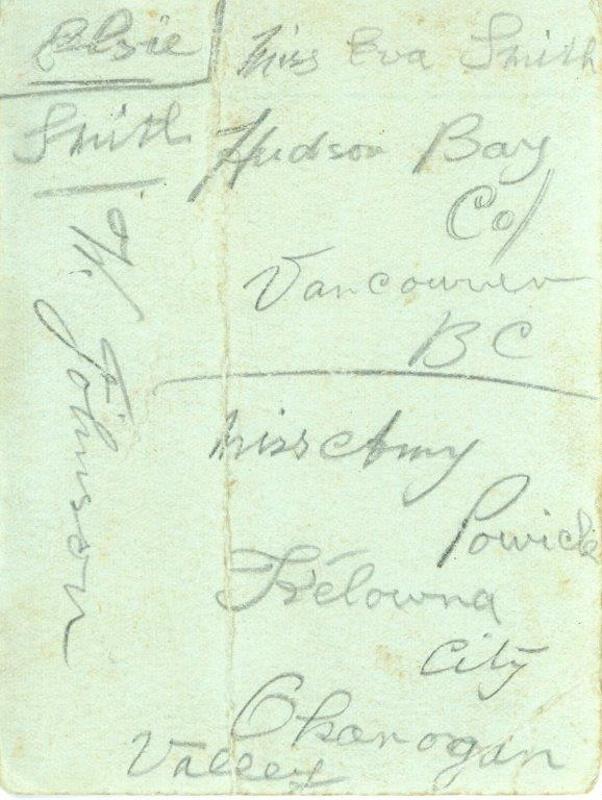 Elsie
Smith
W. Johnson
Miss Eva Smith
Hudson Bay
Co/
Vancouver
BC
Miss Amy
Powick
Kelowna
City
Okanogan
Valley